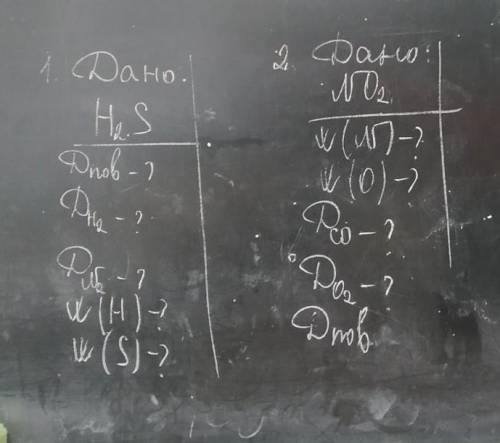 1. Дано:
H₂S
Dпов - ?
D H₂ - ?
D N₂ - ?
W (H) - ?
W (S) - ?
2. Дано:
NO₂
W (N) - ?
W (O) - ?
D CO - ?
D O₂ - ?
Dпов